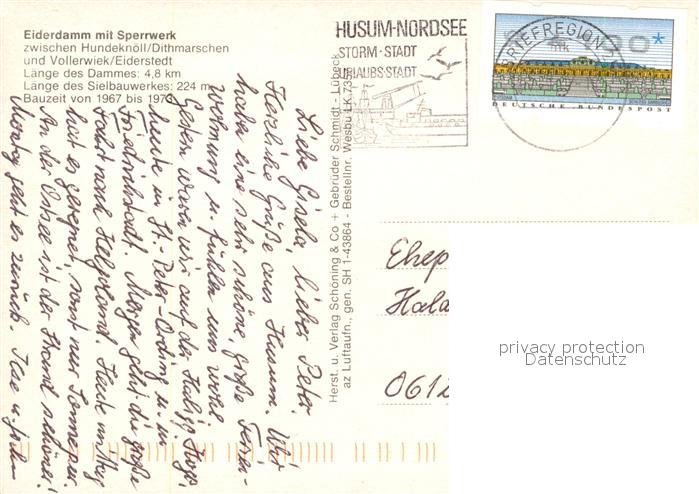 Eiderdamm mit Sperrwerk
zwischen Hundeknöll/Dithmarschen
und Vollerwiek/Eiderstedt
Länge des Dammes: 4,8 km
Länge des Sielbauwerkes: 224 m
Bauzeit von 1967 bis 1973
HUSUM-NORDSEE
STORM-STADT
URLAUBS-STADT
BRIEFREGION
DEUTSCHE BUNDESPOST
Herst. u. Verlag Schöning & Co + Gebrüder Schmidt - Lübeck
az Luftaufn., gen. SH 1-43864 - Bestellnr. Wesbu LK 735
Liebe Gisela, lieber Peter,
Herzliche Grüße aus Husum. Wir
haben eine sehr schöne, große Ferien-
wohnung u. fühlen uns wohl.
Gestern waren wir auf der Hallig Hooge,
heute in St.-Peter-Ording u. in
Friedrichstadt. Morgen geht die große
Fahrt nach Helgoland. Heute
hat es geregnet, sonst nur Sonne pur.
An der Ostsee ist der Strand schöner!
geht es zurück.
Ehep
Hala
0612
privacy protection
Datenschutz